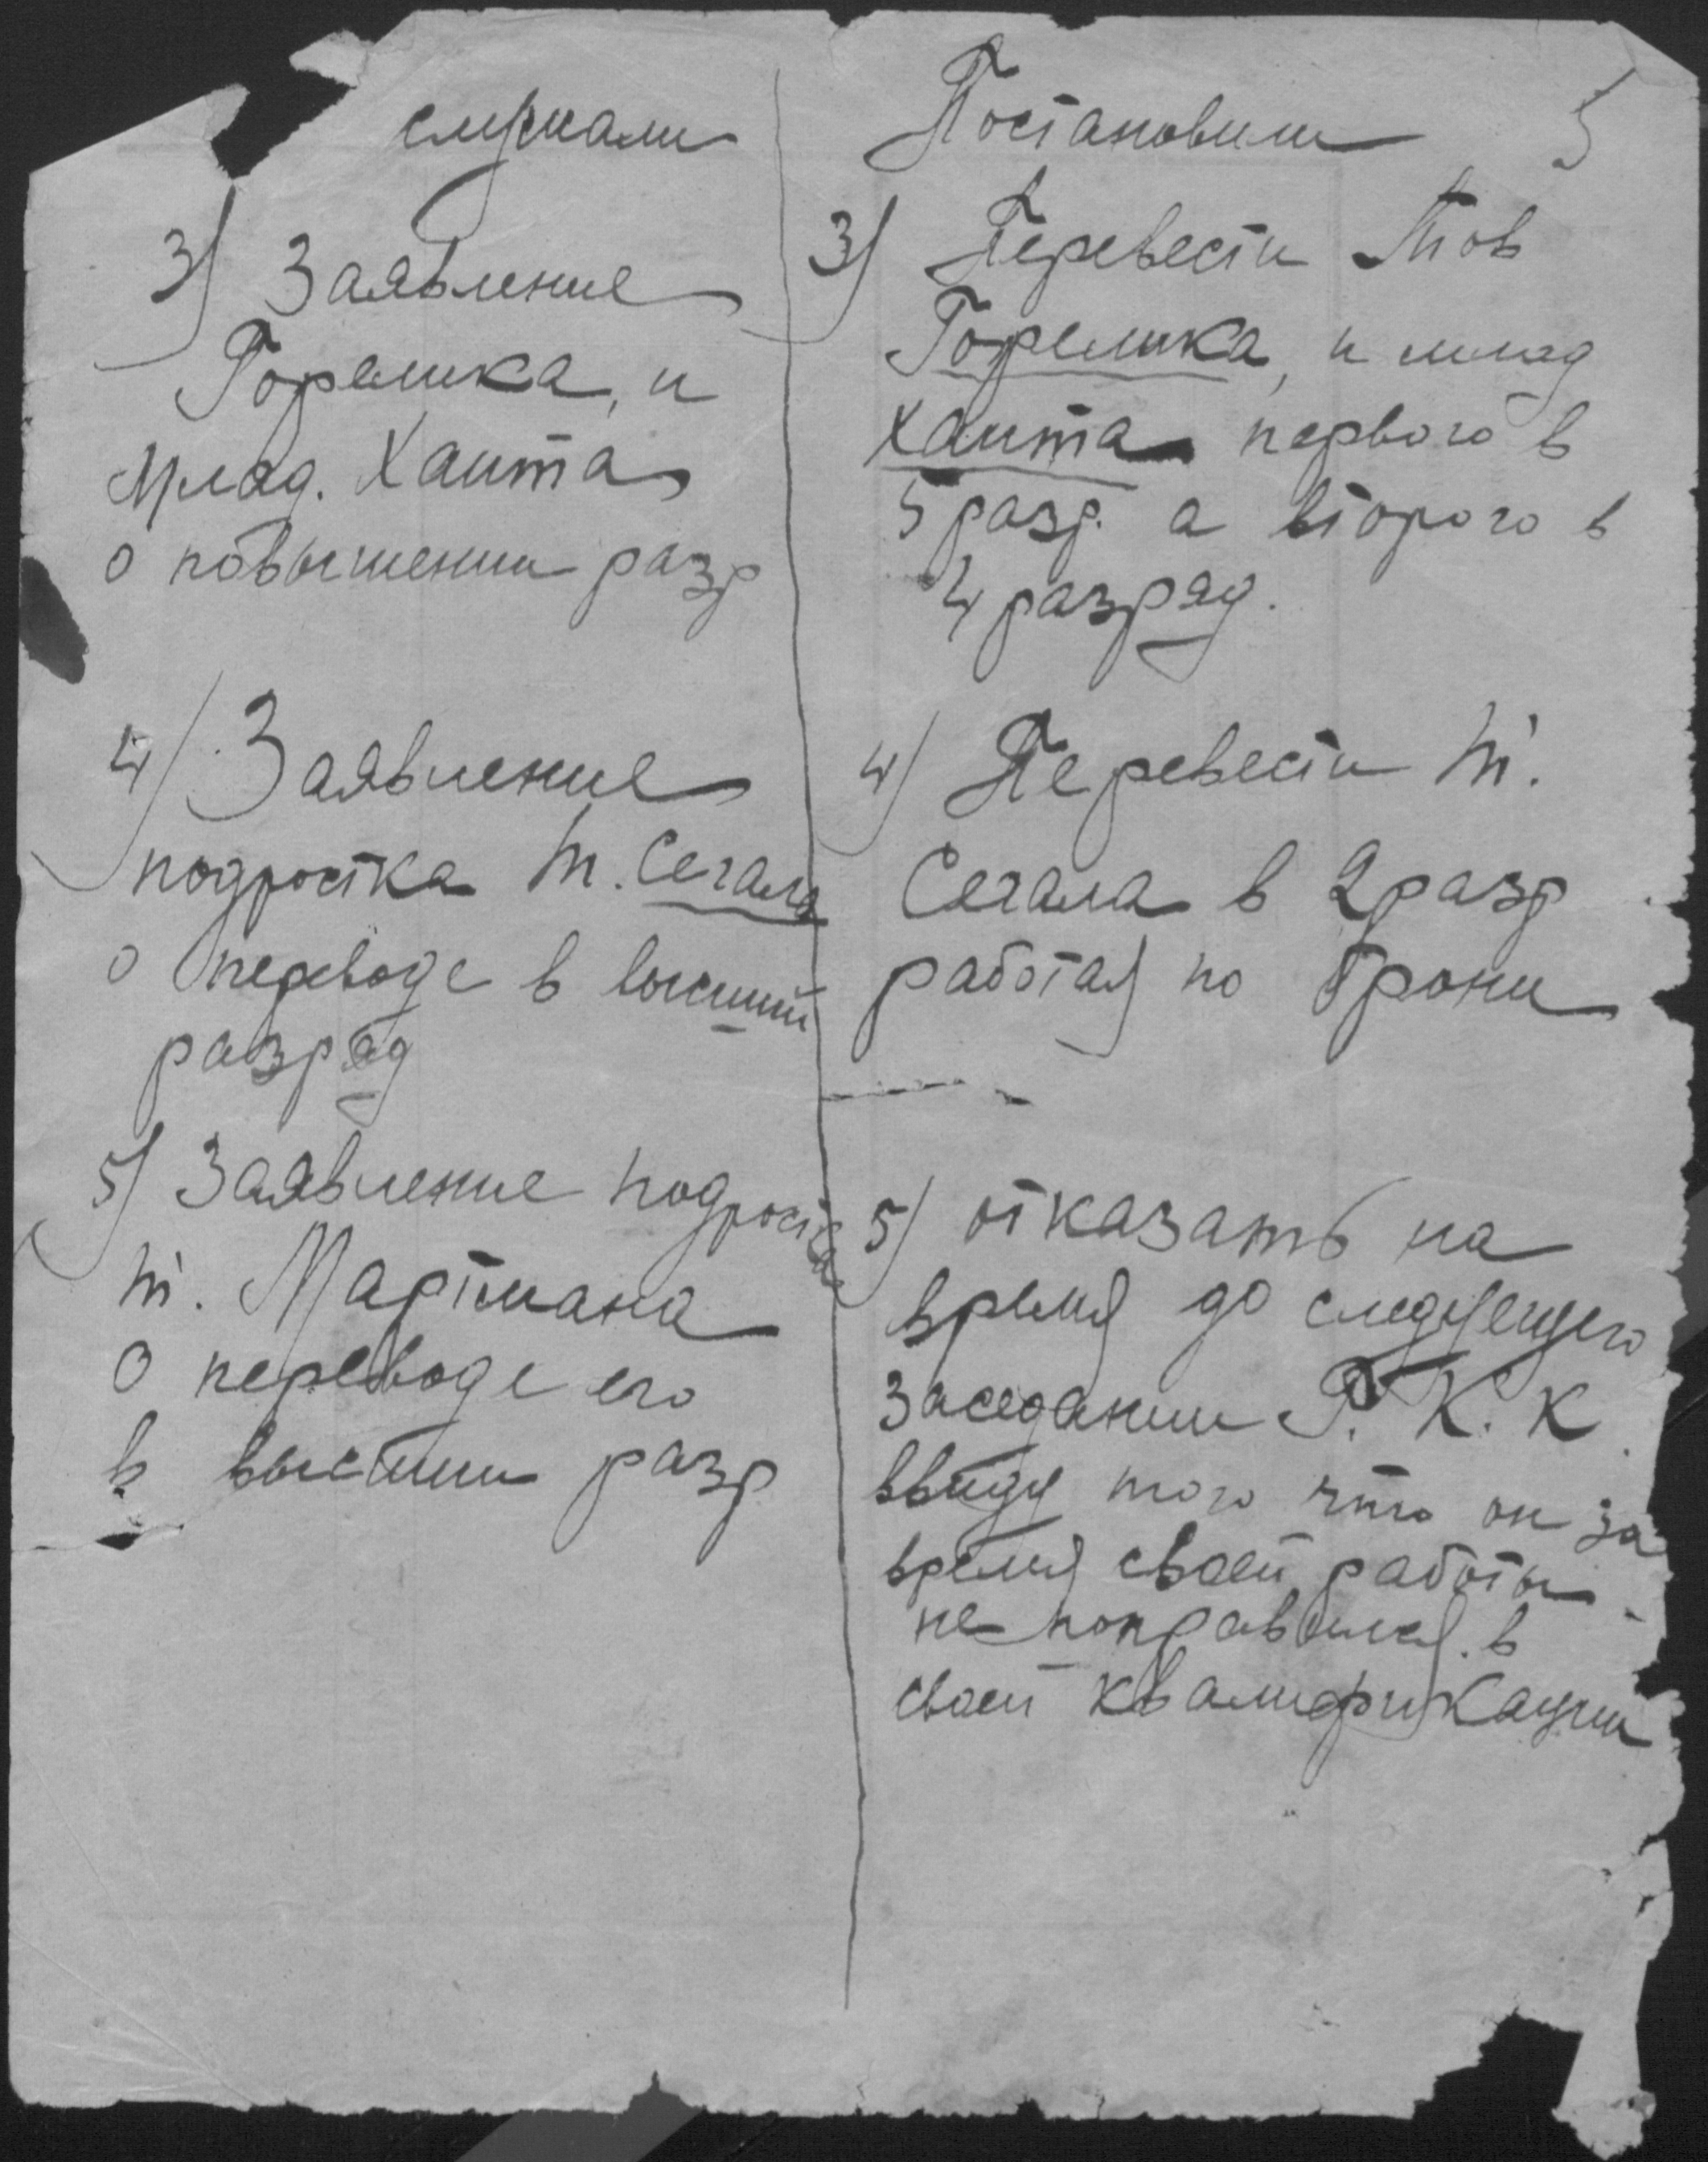 слушали
3) Заявление
Горелика, и
Млад. Хаита
о повышении разр
4) Заявление
подростка т. Сегала
о переводе в высший
разряд
5) Заявление подростка
т. Мартмана
о переводе его
в высшии разр
Постановили
5
3) Перевести Тов
Горелика, и млад
Хаита первого в
5 разр. а второго в
4 разряд.
4) Перевести т.
Сегала в 2 разр
работая по брони
5) отказать на
время до следуещего
заседании Р. К. К
ввиду того что он за
время своей работы
не поправился в
своей квалификации